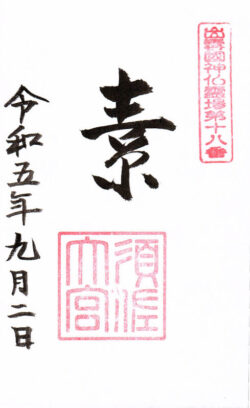 出雲國神仏霊場第十八番
素
須佐
大宮
令和五年九月二日